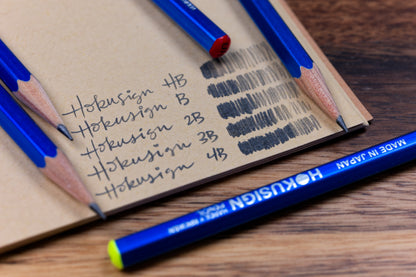 Hokusign HB
Hokusign B
Hokusign 2B
Hokusign 3B
Hokusign 4B
HOKUSIGN MADE IN JAPAN
PENCIL